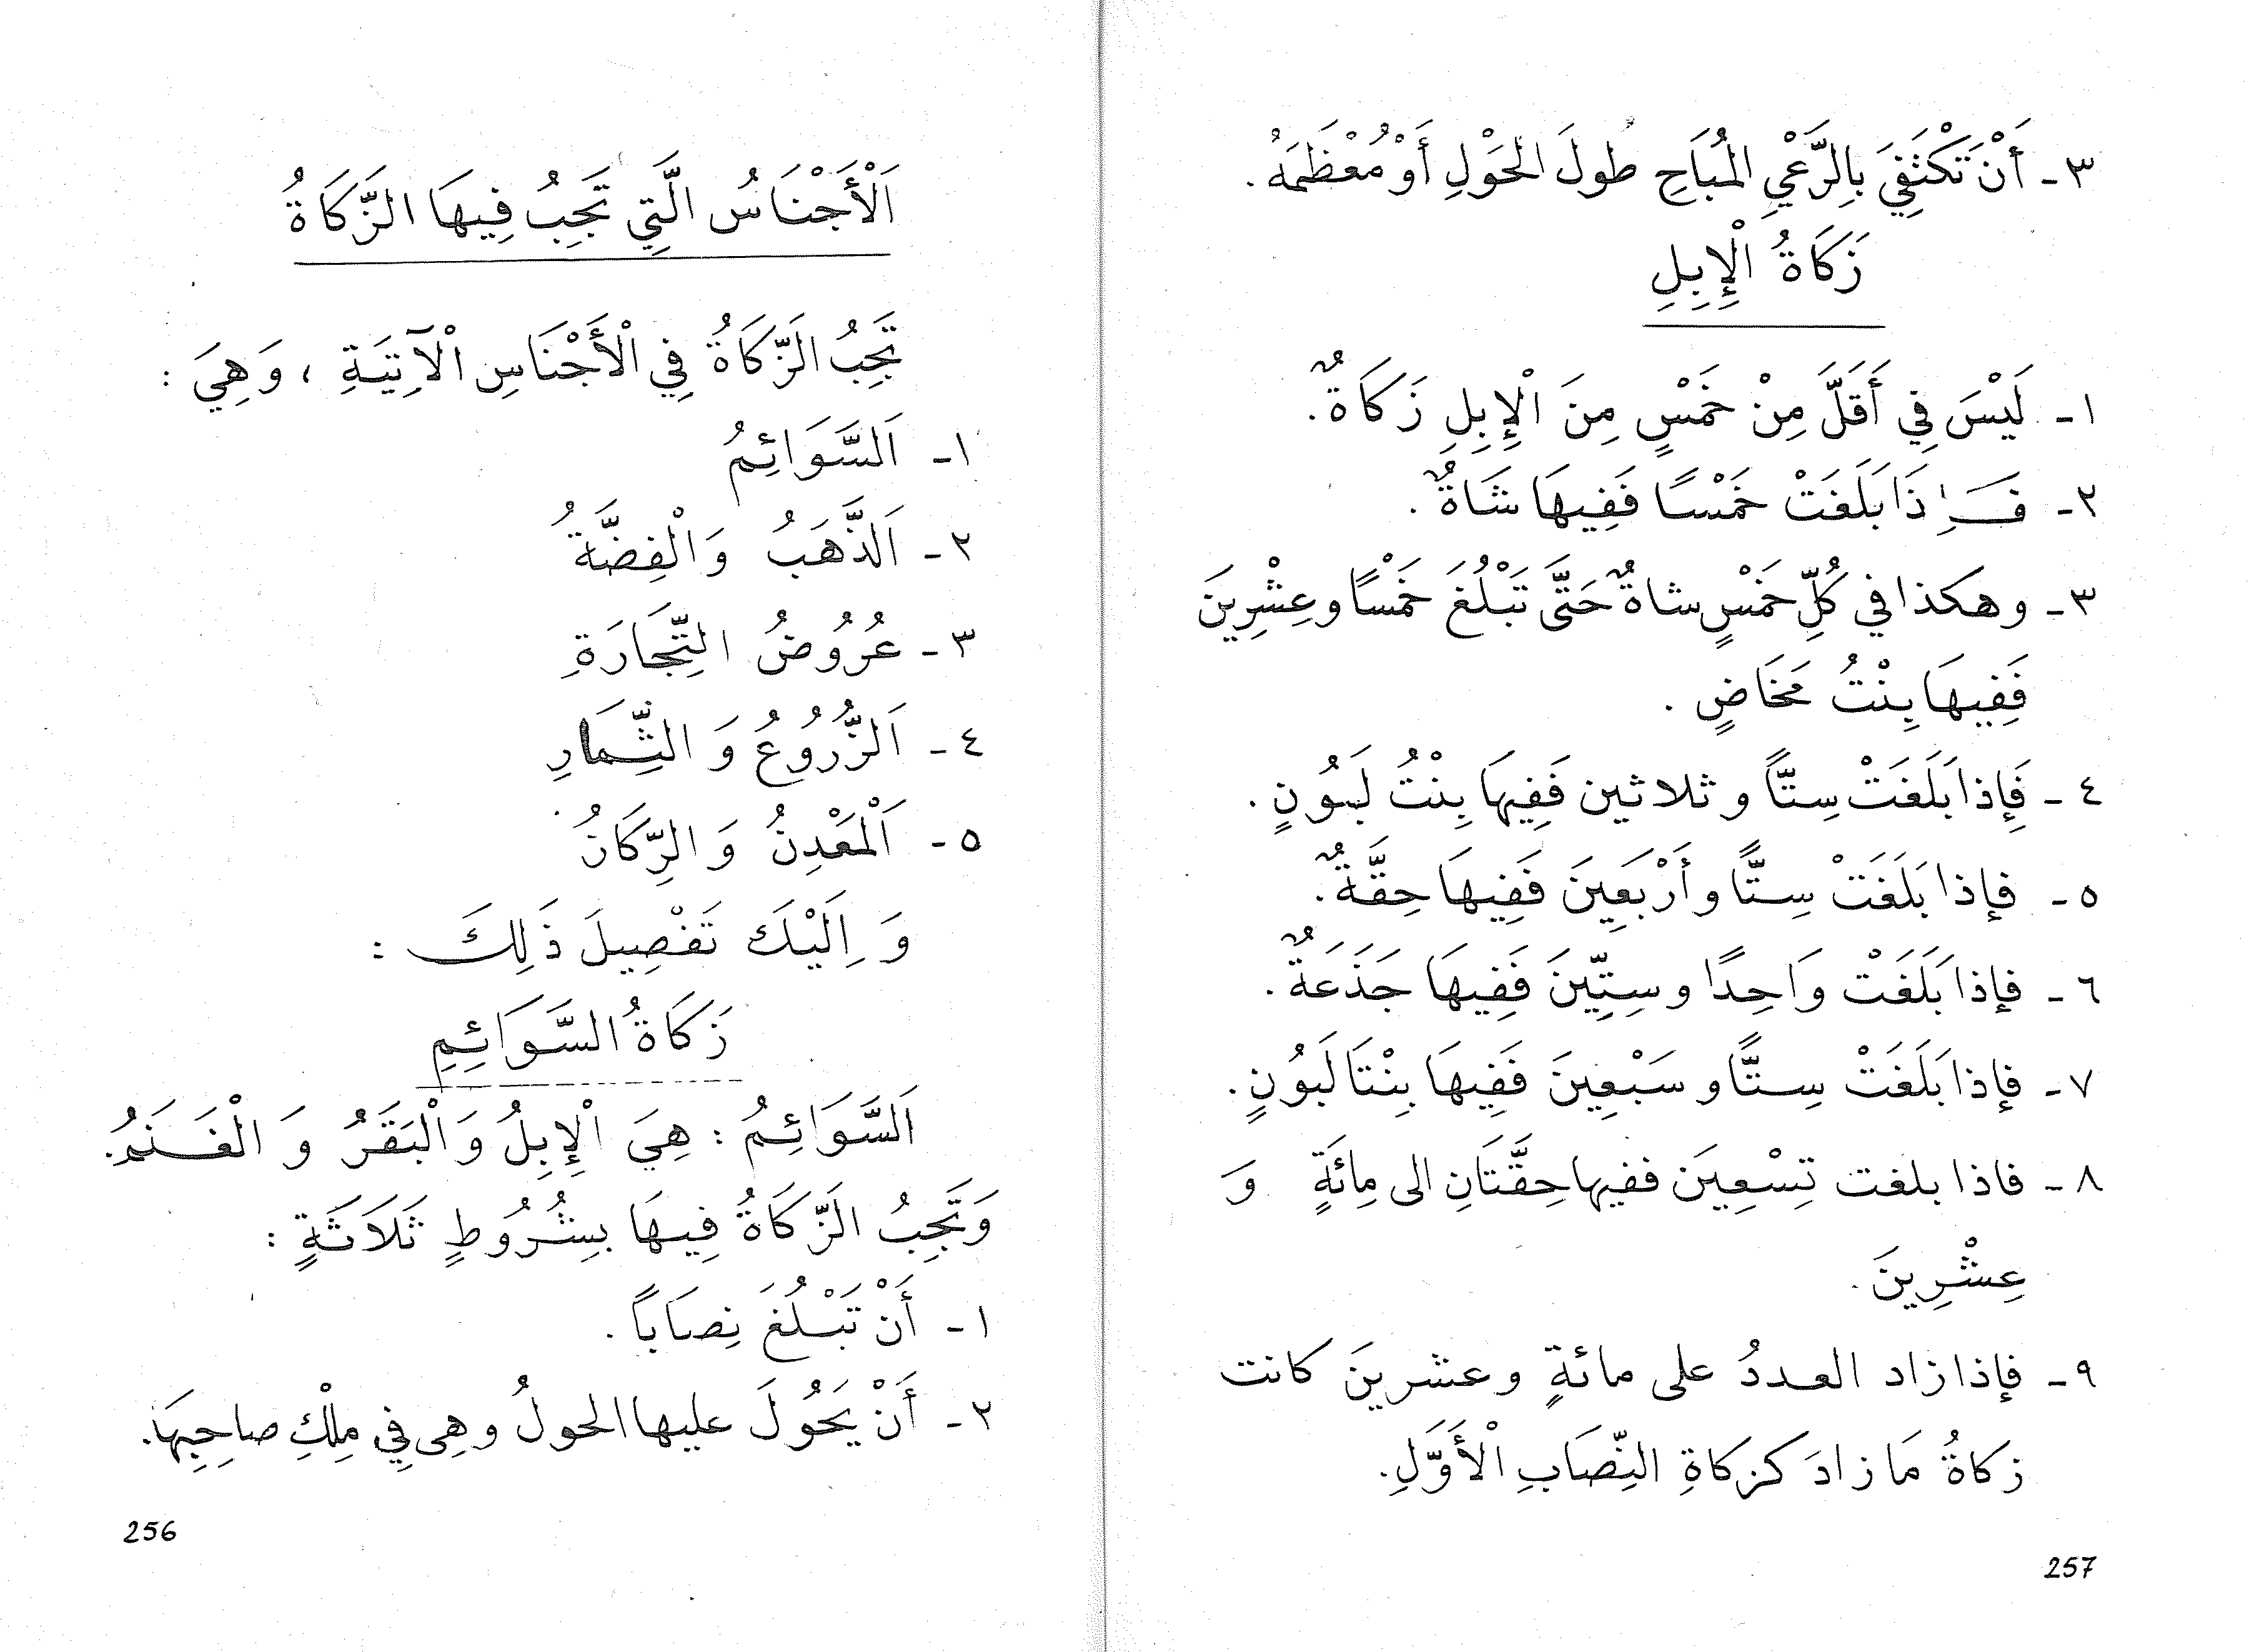 اَلْأَجْنَاسُ الَّتِي تَجِبُ فِيهَا الزَّكَاةُ
تَجِبُ الزَّكَاةُ فِي الْأَجْنَاسِ الْآتِيَةِ ، وَهِيَ :
١- اَلسَّوَائِمُ
٢- اَلذَّهَبُ وَالْفِضَّةُ
٣- عُرُوضُ التِّجَارَةِ
٤- اَلزُّرُوعُ وَ الثِّمَارِ
٥- اَلْمَعْدِنُ وَ الرِّكَازُ
وَ اِلَيْكَ تَفْصِيلَ ذَلِكَ :
زَكَاةُ السَّوَائِمِ
اَلسَّوَائِمُ : هِيَ الْإِبِلُ وَالْبَقَرُ وَ الْغَنَمُ.
وَتَجِبُ الزَّكَاةُ فِيهَا بِشُرُوطٍ ثَلَاثَةٍ :
١- أَنْ تَبْلُغَ نِصَابًا .
٢- أَنْ يَحُولَ عليها الحولُ وهِى فِي مِلْكِ صاحِبِهَا.
256
٣- أَنْ تَكْتَفِيَ بِالرَّعْيِ الْمُبَاحِ طُولَ الْحَوْلِ أَوْ مُعْظَمَهُ.
زَكَاةُ الْإِبِلِ
١- لَيْسَ فِي أَقَلَّ مِنْ خَمْسٍ مِنَ الْإِبِلِ زَكَاةٌ.
٢- فَـاِذَا بَلَغَتْ خَمْسًا فَفِيهَا شَاةٌ .
٣- وهكذا في كُلِّ خَمْسٍ شاةٌ حَتَّى تَبْلُغَ خَمْسًا وعِشْرِينَ
فَفِيهَا بِنْتُ مَخَاضٍ .
٤- فَإِذا بَلَغَتْ سِتًّا و ثلاثين فَفِيهَا بِنْتُ لَبُونٍ .
٥- فإذا بَلَغَتْ سِتًّا وأَرْبَعِينَ فَفِيهَا حِقَّةٌ.
٦- فإذا بَلَغَتْ وَاحِدًا وسِتِّينَ فَفِيهَا جَذَعَةٌ.
٧- فإذا بَلَغَتْ سِتًّا و سَبْعِينَ فَفِيهَا بِنْتَا لَبُونٍ.
٨- فاذا بلغت تِسْعِينَ ففيها حِقَّتَانِ الى مِائَةٍ وَ
عِشْرِينَ.
٩- فإذا زاد العددُ على مائةٍ وعشرينَ كانت
زكاةُ مَا زادَ كزكاةِ النِّصَابِ الْأَوَّلِ.
257